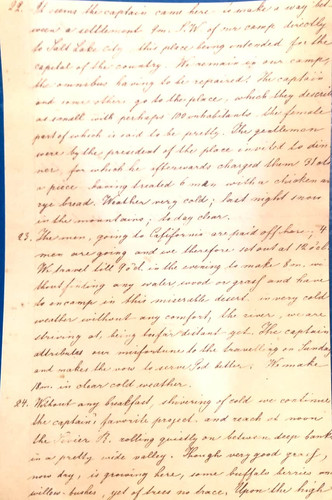 22. It seems the captain came here, to make a way bet
ween a settlement 4m. S.W of our camp directly
to Salt Lake City, this place being intended for the
capital of the country. We remain in our camp,
the omnibus having to be repaired. The captain
and some others go to the place, which they describe
as small with perhaps 100 inhabitants, the female
part of which is said to be pretty. The gentlemen
were by the president of the place invited to din
ner, for which he afterwards charged them
a piece having treated 6 men with a chicken and
rye bread. Weather very cold; last night snow
in the mountains; to day clear.
23. The men, going to California are paid off here; 4
men are going and we therefore set out at 12 o'cl.
We travel till 9 o'cl. in the evening to make 8 m. wi
thout finding any water, wood or grass and have
to encamp in this miserable desert. in very cold
weather without any comfort, the river, we are
striving at, being as far distant yet. The captain
attributes our misfortune to the travelling on Sunday
and makes the vow to serve God better. We make
18m. in clear cold weather.
24. Without any breakfast, shivering of cold we continue
the captain's favorite project and reach at noon
the Sevier R. rolling quietly on between deep banks
in a pretty wide valley. Though very good grass,
now dry, is growing here, some buffalo berries and
willow bushes, yet of trees no trace. Upon the high